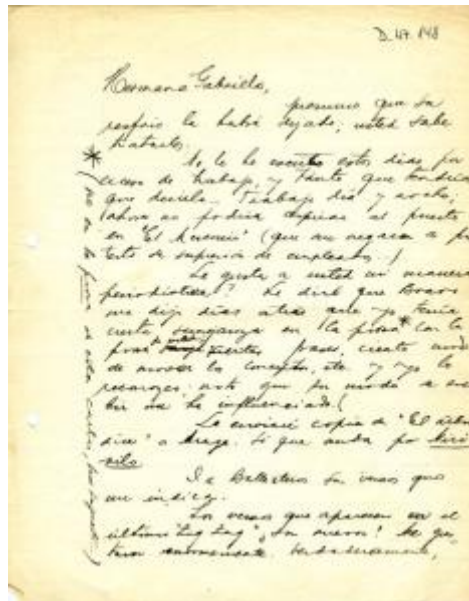 D. 47. 148
Hermana Gabriela,
presumo que su
resfrío la habrá dejado; usted sabe
tratarlos.
No le he escrito estos días por
exceso de trabajo, y tanto que tendría
que decirle. Trabajo día y noche,
ahora no podría aspirar al puesto
en "El Mercurio" (que me negaron a pre
texto de supresión de empleados..)
Le gusta a usted mi manera
periodística? Le diré que Bravo
me dijo días atrás que yo tenía
cierta semejanza en la prosa* con la
prosa de usted. frases, cierto modo
de mover los conceptos, etc y yo lo
reconozco: noto que su modo de escri
bir me ha influenciado.
Le enviaré copia de "El
dice" a . Sí que anda por

Da Ballesteros sus versos que
me indica.
Los versos que aparecen en el
último "Zig Zag" ¿son nuevos? Me gus
taron enormemente. Verdaderamente,
* (No en la prosa de estas cartas,